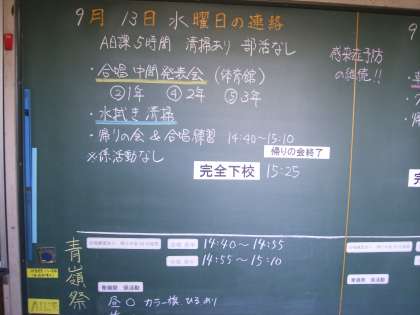 9月 13日 水曜日の連絡
AB課 5時間 清掃あり 部活なし
合唱中間発表会 (体育館)
②1年 ④2年 ⑤3年
・水拭き清掃
・帰りの会 & 合唱練習 14:40〜15:10
帰りの会終了
※係活動なし
完全下校 15:25
感染症予防
の継続!!
青嶺祭
14:40〜14:55
14:55〜15:10
昼〇 カラー旗